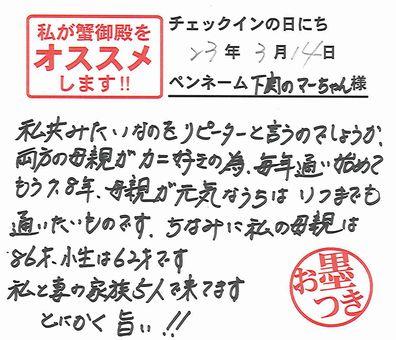 私が蟹御殿を
オススメ
します!!
チェックインの日にち
23年3月14日
ペンネーム 下関のマーちゃん様
私共みたいなのをリピーターと言うのでしょうか、
両方の母親がカニ好きの為、毎年通い始めて
もう7.8年、母親が元気なうちはいつまでも
通いたいものです、ちなみに私の母親は
86才、小生は62才です
私と妻の家族5人で来てます
とにかく旨い!!
お墨つき